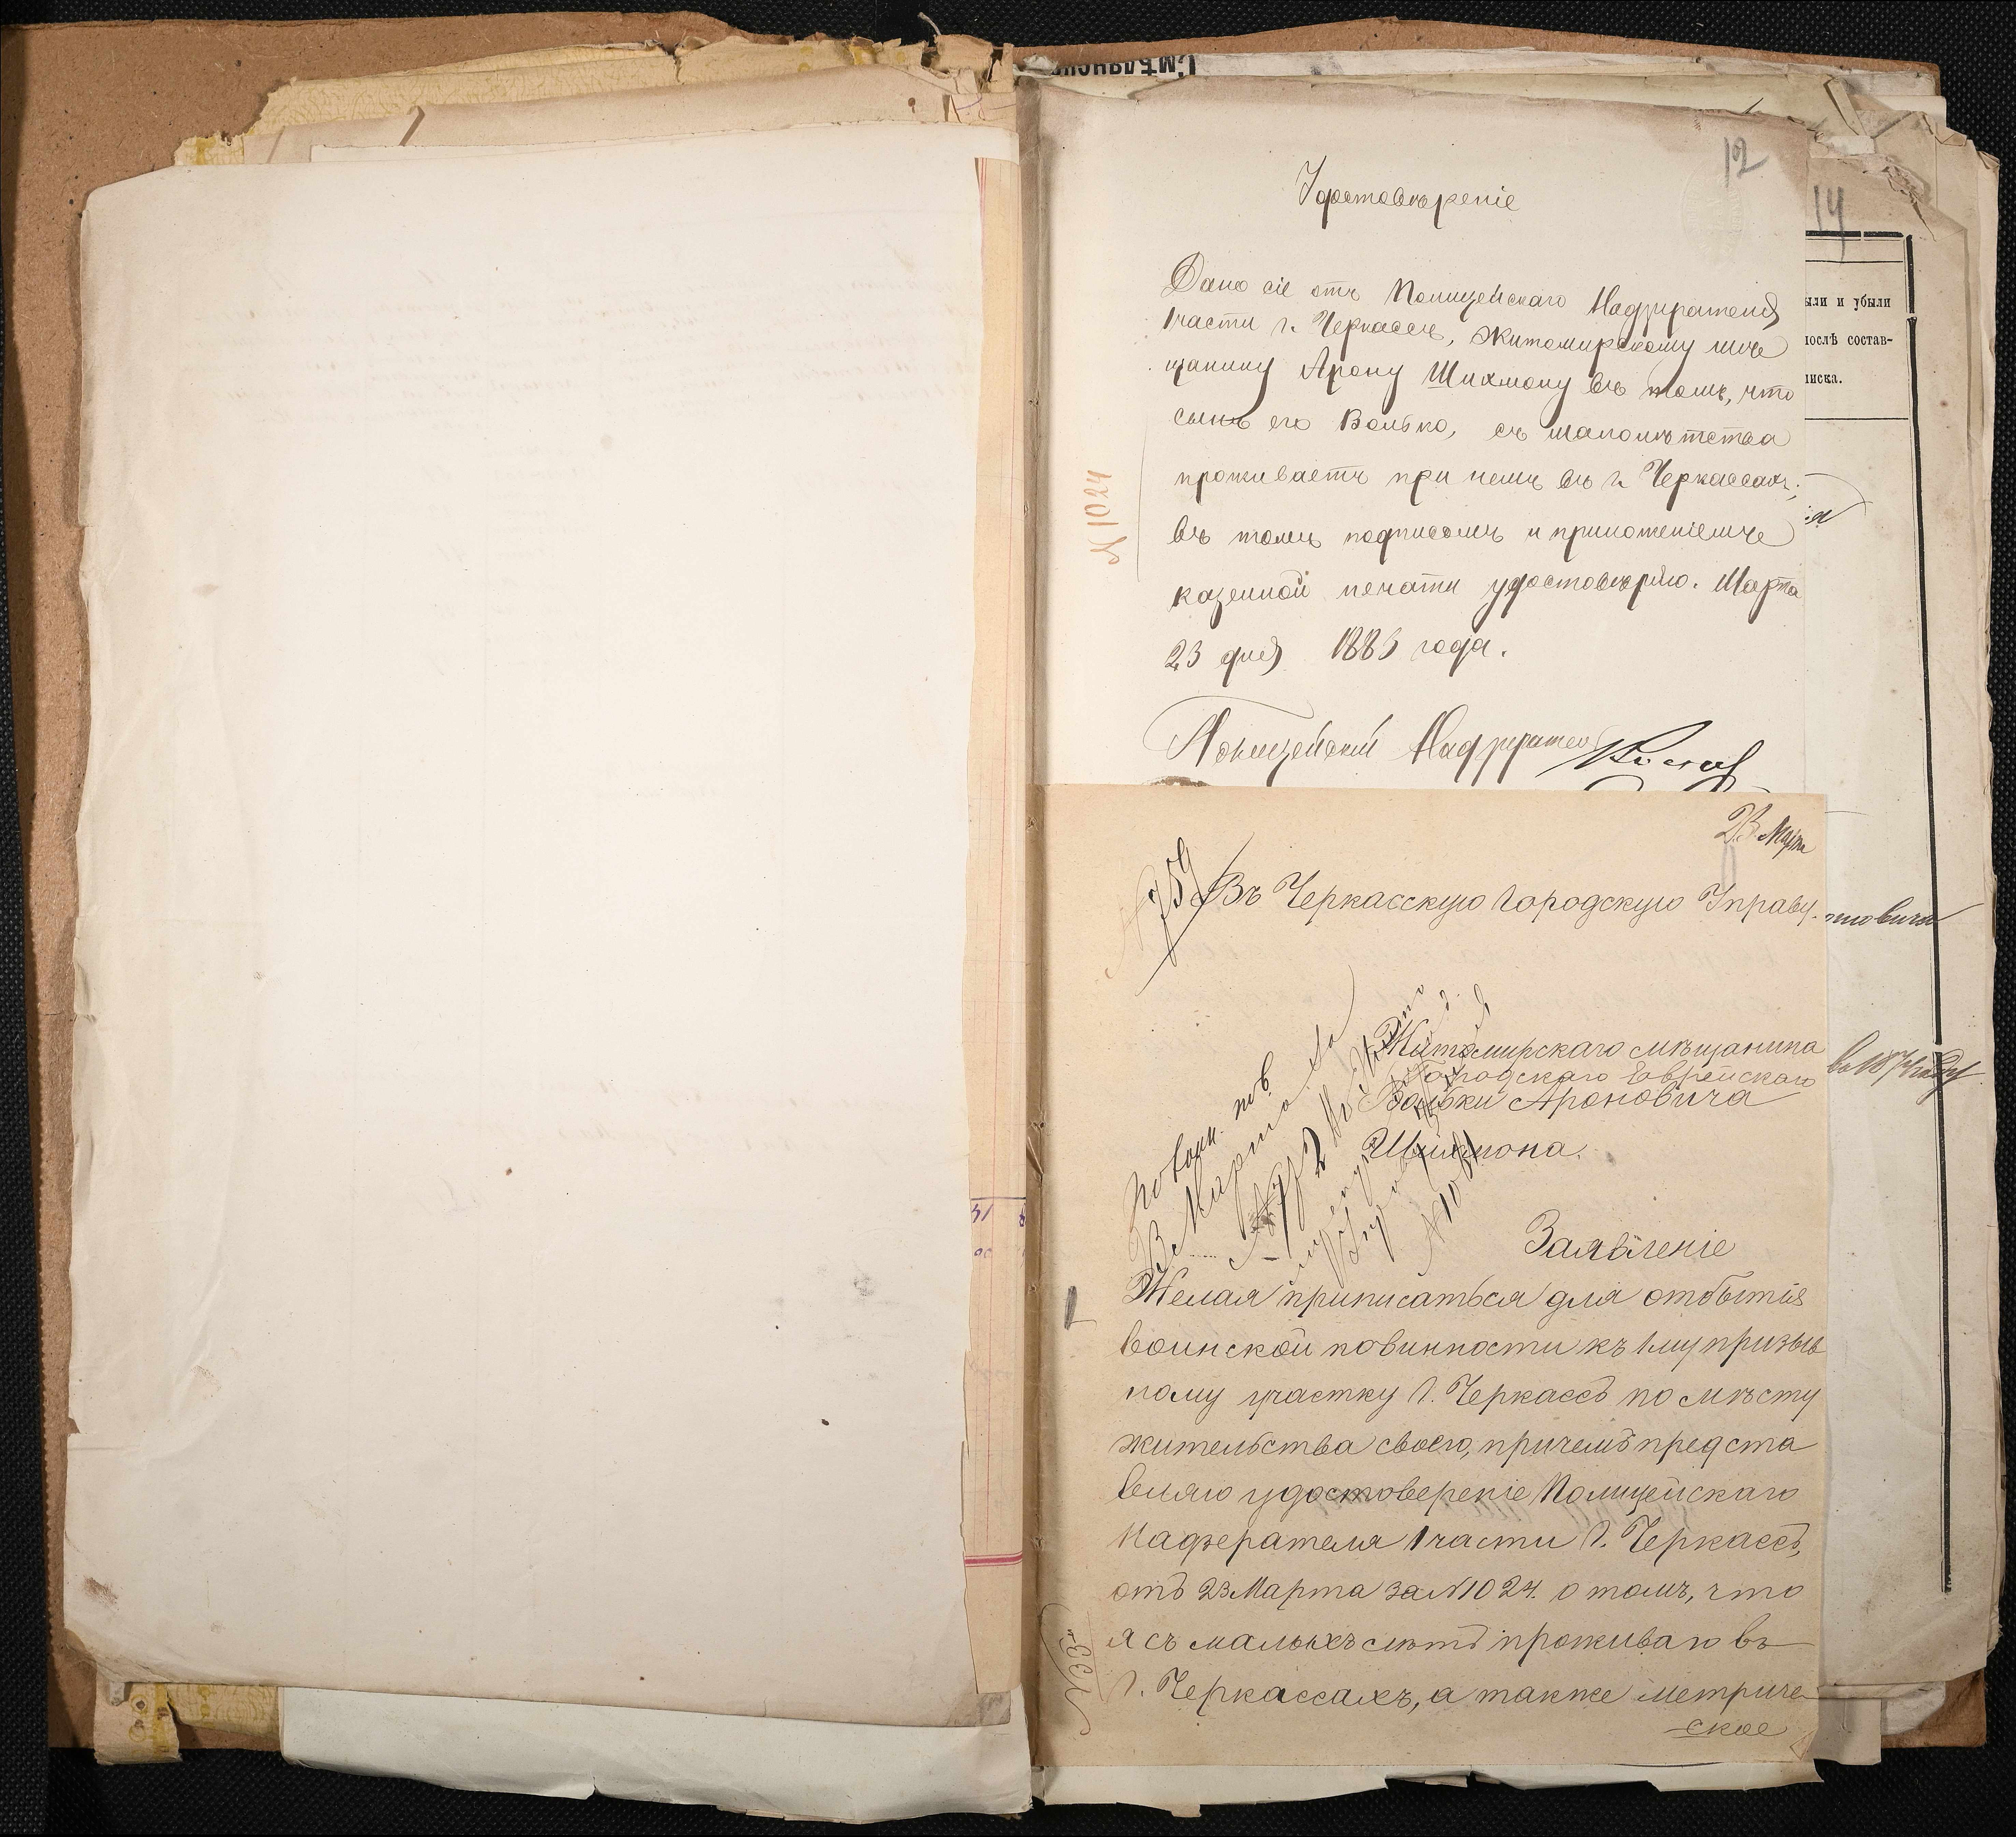 12
Удостовѣреніе
Дано сіе отъ Полицейскаго Надзирателя
1 части г. Черкассъ, Житомирскому мѣ
щанину Арону Шихману въ томъ, что
сынъ его Волько, съ малолѣтства
проживаетъ при немъ въ г. Черкассахъ;
въ томъ подписомъ и приложеніемъ
казенной печати удостовѣряю. Марта
23 дня 1883 года.
Полицейскій Надзиратель
№ 1024
14
ыли и убыли
послѣ состав-
писка.
23 Марта
759
Въ Черкасскую Городскую Управу.
Житомирскаго мѣщанина
Городскаго Еврейскаго
Вольки Ароновича
Шихмона.
По воин. пов.
Марта
Заявленіе
Желая приписаться для отбытія
воинской повинности къ 1му призыв
ному участку г. Черкассъ по мѣсту
жительства своего, причемъ предста
вляю удостовереніе Полицейскаго
Надзерателя 1 части г. Черкассъ,
отъ 23 Марта за №1024. о томъ, что
я съ малыхъ лѣтъ проживаю въ
г. Черкассахъ, а также метриче
ское